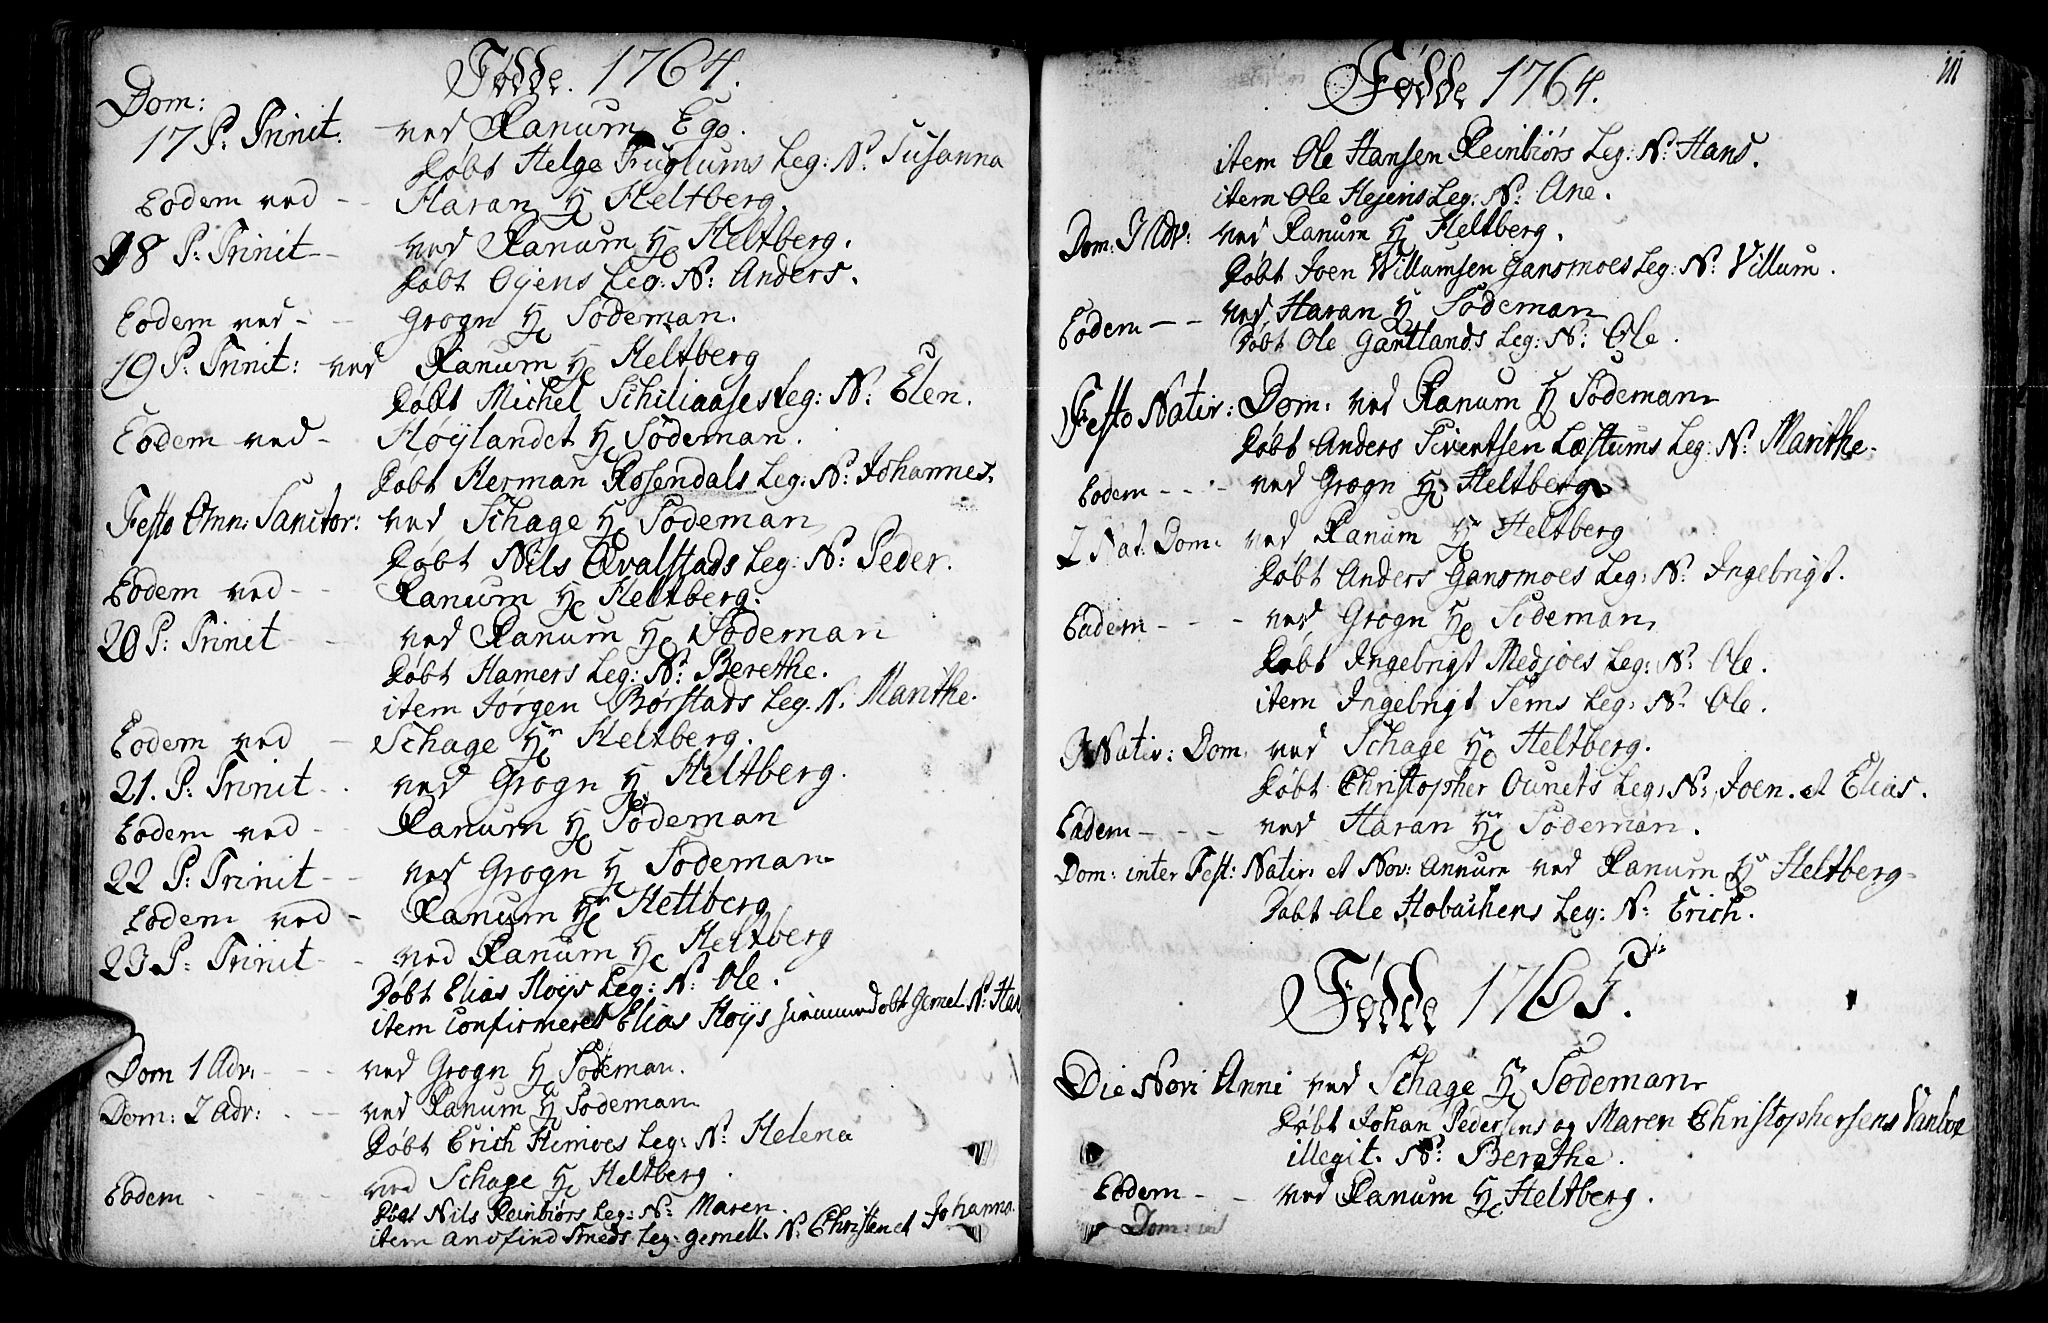 Fødde. 1764.
Dom:
17 P: Trinit. ved Ranum Ego.
Døbt Helge Fuglums Leg: N: Susanna
Eodem ved - - Haran Hr Heltberg.
18 P: Trinit - - ved Ranum Hr Heltberg.
Døbt Oyens Leg: N: Anders.
Eodem ved - - Grogn Hr Södeman.
19 P: Trinit: ved Ranum Hr Heltberg
Døbt Michel Schiliaases Leg: N: Elen.
Eodem ved - Høylandet Hr Södeman.
Døbt Herman Rosendals Leg: N: Johannes.
Festo Omn: Sanctor: ved Schage Hr Södeman
Døbt Nils Qvalstads Leg: N: Peder.
Eodem ved - - Ranum Hr Heltberg.
20 P: Trinit - - ved Ranum Hr Södeman
Døbt Hamers Leg: N: Berethe.
item Jørgen Børstads Leg. N. Marithe.
Eodem ved - Schage Hr Heltberg.
21. P: Trinit - - ved Grogn Hr Heltberg.
Eodem ved - - Ranum Hr Södeman
22 P: Trinit - - ved Grogn Hr Södeman
Eodem ved - Ranum Hr Heltberg
23 P: Trinit - - ved Ranum Hr Heltberg
Døbt Elias Høys Leg: N: Ole.
item Confirmeret Elias Høys hjemmedøbt Gemel. N: Han
Dom 1 Adv: - - - ved Grogn Hr Södeman.
Dom: 2 Adv: - - - ved Ranum Hr Södeman
Døbt Erich Hemoes Leg: N: Helena
Eodem - - - ved Schage Hr Heltberg.
Døbt Nils Reinbiørs Leg: N: Maren.
item Anofind Smeds Leg: gemell. N: Christen et Johanna.
111
Fødde 1764.
item Ole Hansen Reinbiørs Leg: N: Hans.
item Ole Hejens Leg: N: Ane.
Dom: 3 Adv: ved Ranum Hr Heltberg.
Døbt Joen Willumsen Gansmoes Leg: N: Villum.
Eodem - - ved Haran Hr Södeman
Døbt Ole Gartlands Leg: N: Ole.
Festo Nativ: Dom. ved Ranum Hr Södeman
Døbt Anders Sivertsen Læstums Leg: N: Marithe.
Eodem - - - ved Grogn Hr Heltberg
2 Nat: Dom: ved Ranum Hr Heltberg
Døbt Anders Gansmoes Leg: N: Ingebrigt.
Eadem - - - ved Grogn Hr Södeman,
Døbt Ingebrigt Medjøes Leg: N: Ole.
item Ingebrigt Sems Leg: N: Ole.
3 Nativ: Dom. ved Schage Hr Heltberg.
Døbt Christopher Ounets Leg: N: Joen. et Elias.
Eadem - - - ved Haran Hr Södeman.
Dom: inter Fest: Nativ: et Nov: Annum ved Ranum Hr Heltberg
Døbt Ole Hobachens Leg: N: Erich.
Fødde 1765.
Die Novi Anni ved Schage Hr Södeman
Døbt Johan Pedersens og Maren Christophersens
illegit. N: Berethe.
Eodem - - ved Ranum Hr Heltberg.
Dom: